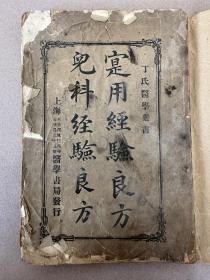 丁氏醫學叢書
寔用經驗良方
兒科經驗良方
上海
醫學書局發行